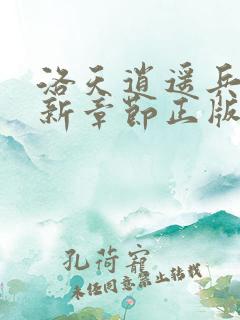 洛天逍遥兵
新章节正版
孔荷宠
未经同意禁止转载